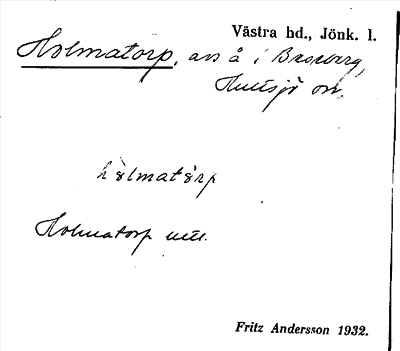 Västra hd., Jönk. l.
Holmatorp, avs å i Broaberg,
Hultsjö sn.
hòlmatòrp
Holmatorp
Fritz Andersson 1932.